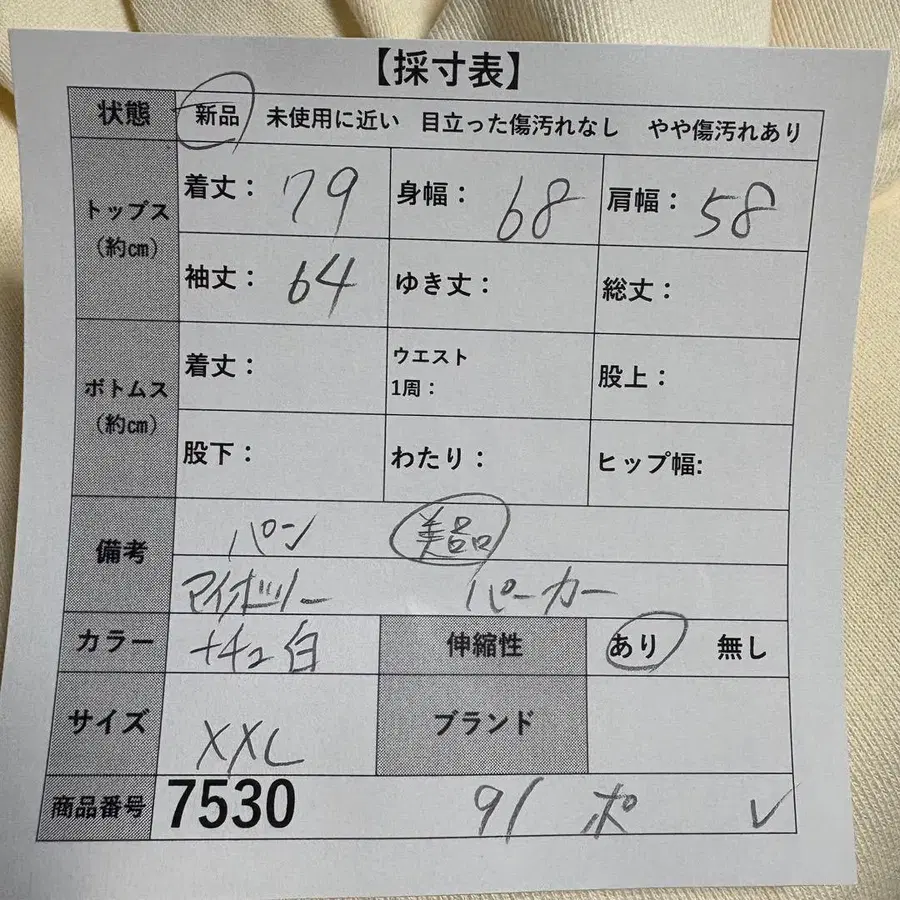 【採寸表】
状態 新品 未使用に近い 目立った傷汚れなし やや傷汚れあり
トップス（約㎝） 着丈： 79 身幅： 68 肩幅： 58
袖丈： 64 ゆき丈： 総丈：
ボトムス（約㎝） 着丈： ウエスト1周： 股上：
股下： わたり： ヒップ幅:
備考 パン 美品
パーカー
カラー ナチュ白 伸縮性 あり 無し
サイズ XXL ブランド
商品番号 7530 91 ポ ✓